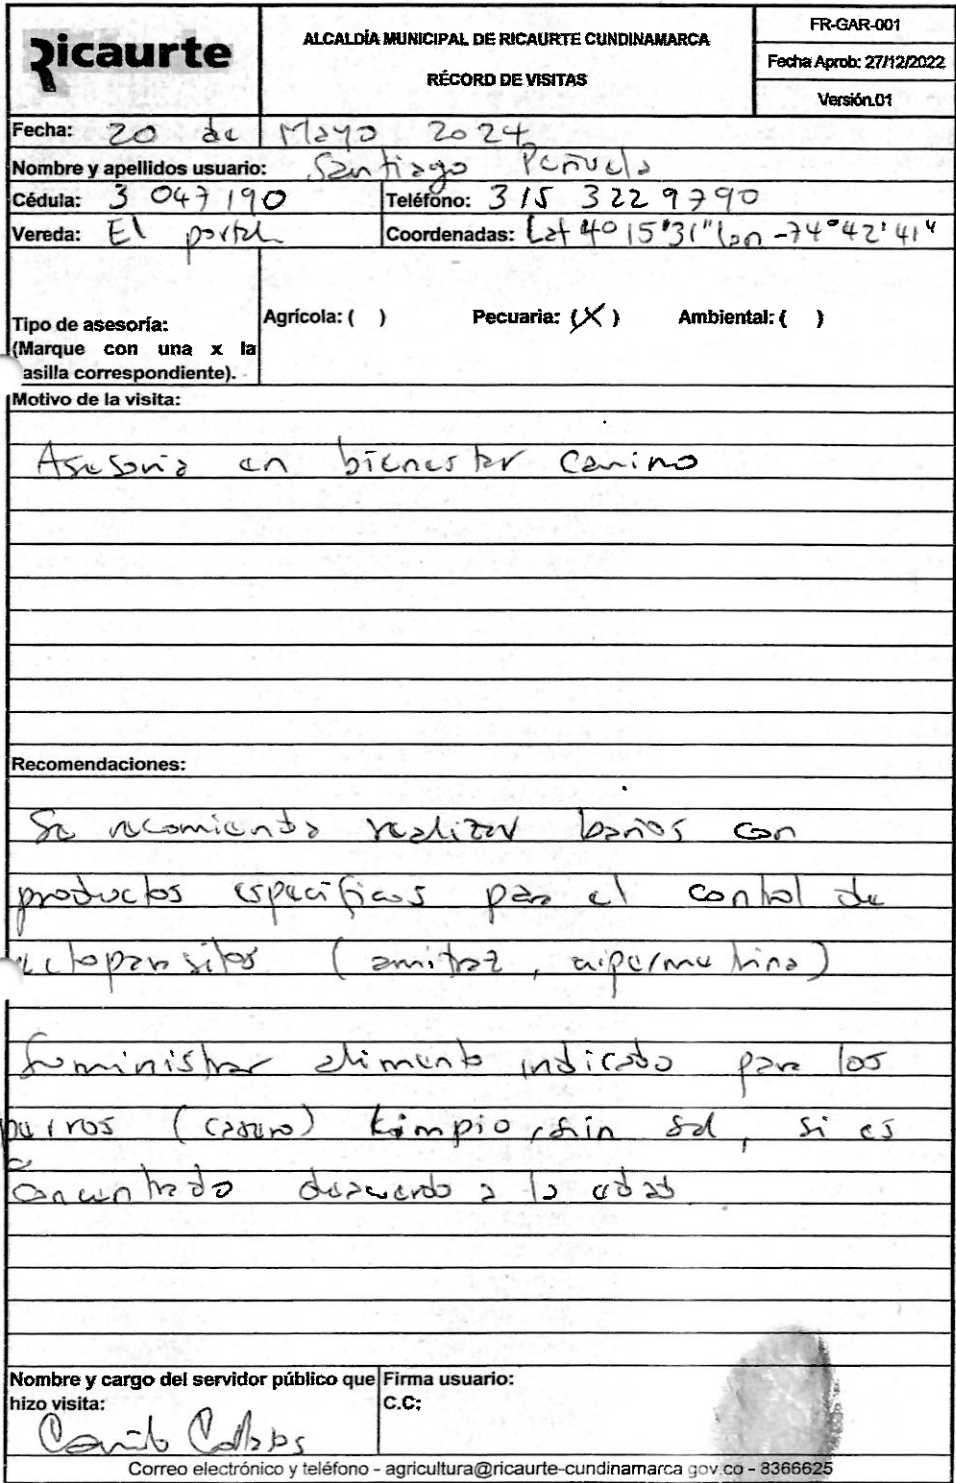 Ricaurte
ALCALDÍA MUNICIPAL DE RICAURTE CUNDINAMARCA
RÉCORD DE VISITAS
FR-GAR-001
Fecha Aprob: 27/12/2022
Versión.01
Fecha: 20 de Mayo 2024
Nombre y apellidos usuario: Santiago Peñuela
Cédula: 3 047 190 Teléfono: 315 322 9790
Vereda: El portal Coordenadas: Lat 4° 15'31" lon -74°42'41"
Tipo de asesoría:
(Marque con una x la
asilla correspondiente).
Agrícola: ( ) Pecuaria: (X) Ambiental: ( )
Motivo de la visita:
Asesoria en bienestar Canino
Recomendaciones:
Se recomienda realizar baños con
productos especificos para el control de
ectoparasitos (amitraz, cipermetrina)
Suministrar alimento indicado para los
perros (casero) limpio, sin sal, si es
Concentrado deacuerdo a la edad
Nombre y cargo del servidor público que
hizo visita:
Camilo
Firma usuario:
C.C:
Correo electrónico y teléfono - agricultura@ricaurte-cundinamarca.gov.co - 8366625